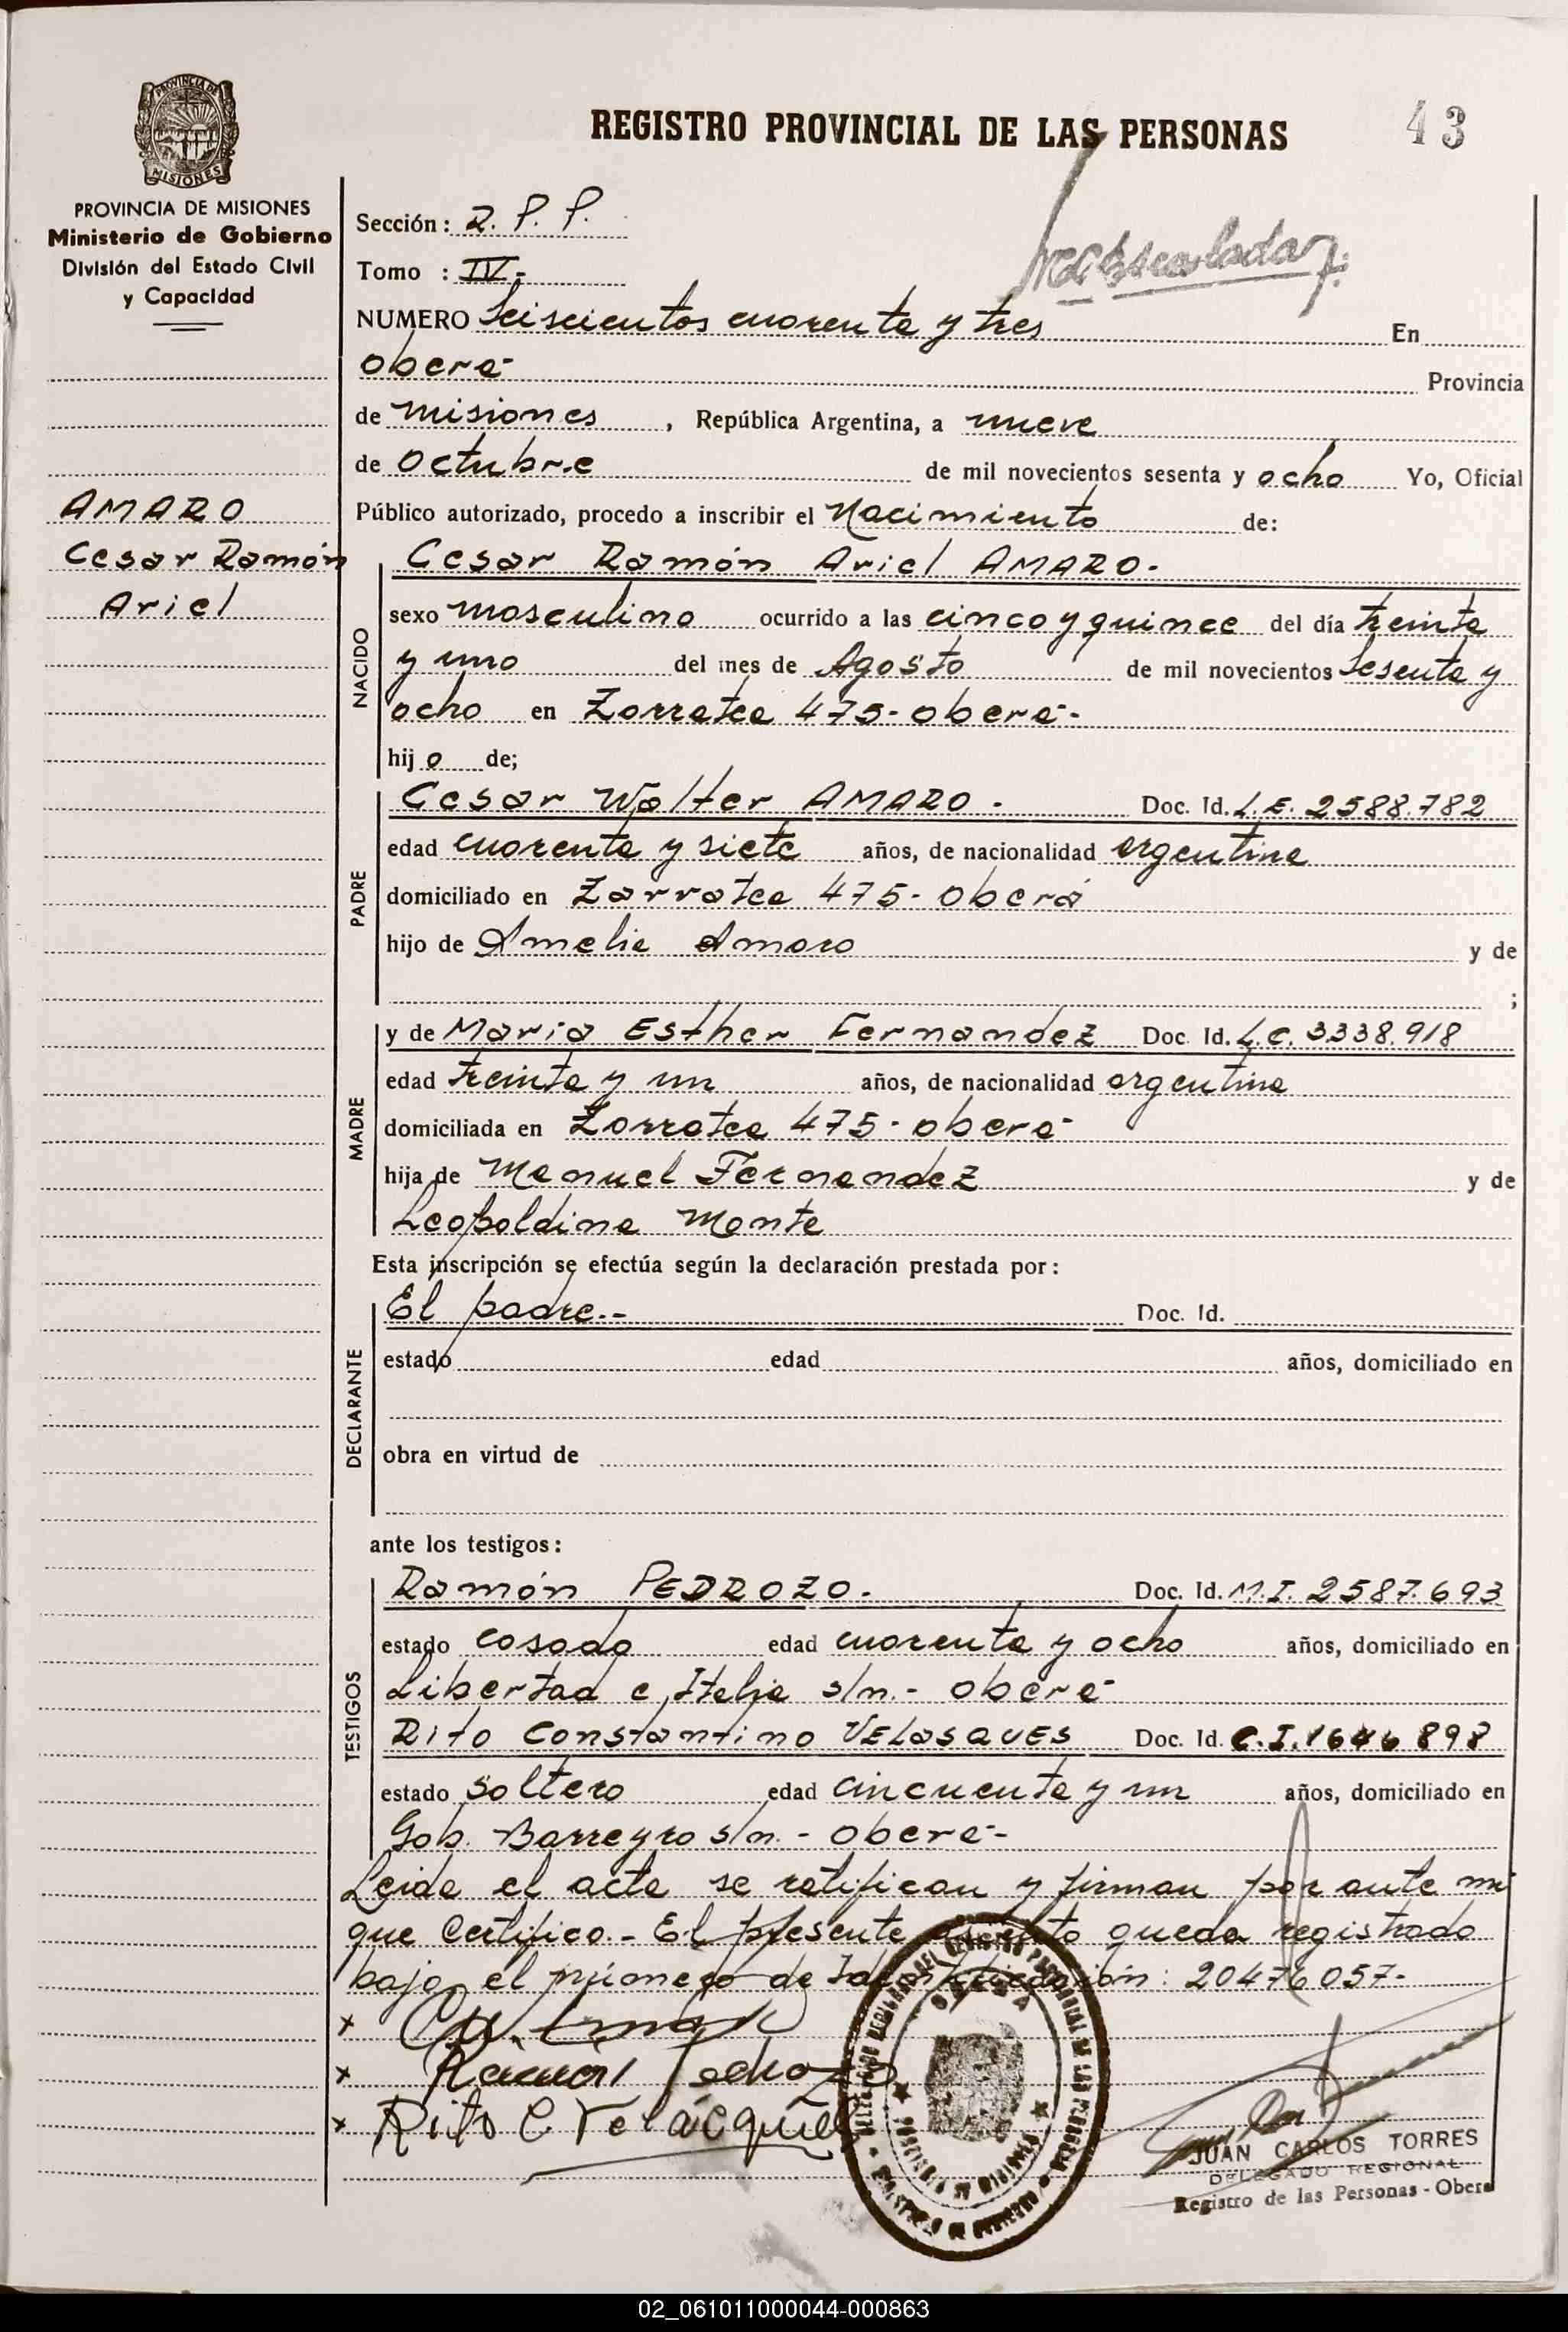 REGISTRO PROVINCIAL DE LAS PERSONAS
43
PROVINCIA DE MISIONES
PROVINCIA DE MISIONES
Ministerio de Gobierno
División del Estado Civil
y Capacidad
AMARO
Cesar Ramón
Ariel
Sección: R. P. P.
Tomo : IV-
NUMERO Seiscientos cuarenta y tres En
Oberá- Provincia
de Misiones, República Argentina, a nueve
de Octubre de mil novecientos sesenta y ocho Yo, Oficial
Público autorizado, procedo a inscribir el Nacimiento de:
NACIDO
Cesar Ramón Ariel AMARO.-
sexo masculino ocurrido a las cinco y quince del día treinta
y uno del mes de Agosto de mil novecientos sesenta y
ocho en Zorratea 475- Oberá-
hijo de;
PADRE
Cesar Walter AMARO.- Doc. Id. L.E. 2588.782
edad cuarenta y siete años, de nacionalidad argentina
domiciliado en Zarratea 475- Oberá
hijo de Amelia Amaro y de
;
MADRE
y de Maria Esther Fernandez Doc. Id. L.C. 3338.918
edad treinta y un años, de nacionalidad argentina
domiciliada en Zorratea 475- Oberá-
hija de Manuel Fernandez y de
Leopoldina Monte
Esta inscripción se efectúa según la declaración prestada por:
DECLARANTE
El padre.- Doc. Id.
estado edad años, domiciliado en
obra en virtud de
ante los testigos:
TESTIGOS
Ramón PEDROZO.- Doc. Id. M.I. 2587.693
estado casado edad cuarenta y ocho años, domiciliado en
Libertad e Italia s/n.- Oberá-
Rito Constantino VELASQUES Doc. Id. C.I. 1646898
estado soltero edad cincuenta y un años, domiciliado en
Gob. Barreyro s/n.- Oberá-
Leida el acta se ratifican y firman por ante mi
que Certifico.- El presente asiento queda registrado
bajo el número de Identificación: 20476057-
Ramon Pedrozo
Rito C Velacquez
JUAN CARLOS TORRES
DELEGADO REGIONAL
Registro de las Personas - Oberá
02_061011000044-000863